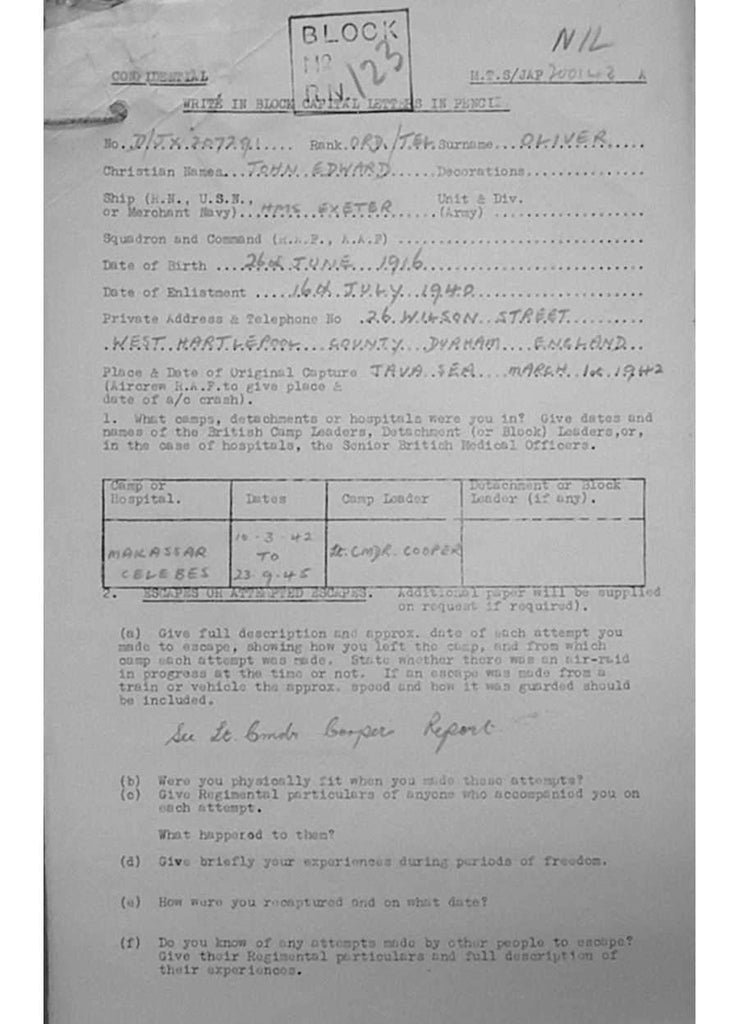 BLOCK
NIL
No
R.N. 123
CONFIDENTIAL
M.I.S/JAP A
WRITE IN BLOCK CAPITAL LETTERS IN PENCIL
No. D/JX.207291.... Rank. ORD/TEL Surname... OLIVER.....
Christian Names... JOHN EDWARD...... Decorations...............
Ship (R.N., U.S.N., Unit & Div.
or Merchant Navy)... HMS EXETER ...... (Army) ..................
Squadron and Command (R.A.F., A.A.F) ...............................
Date of Birth .... 26th JUNE 1916.............................
Date of Enlistment ..... 16th JULY 1940.......................
Private Address & Telephone No . 26. WILSON STREET...........
. WEST HARTLEPOOL COUNTY DURHAM ENGLAND..
Place & Date of Original Capture JAVA SEA.... MARCH 1st 1942
(Aircrew R.A.F. to give place &
date of a/c crash).
1. What camps, detachments or hospitals were you in? Give dates and
names of the British Camp Leaders, Detachment (or Block) Leaders, or,
in the case of hospitals, the Senior British Medical Officers.
Camp or Hospital. Dates Camp Leader Detachment or Block Leader (if any).
MAKASSAR CELEBES 10-3-42 TO 23.9.45 Lt. CMDR. COOPER
2. ESCAPES OR ATTEMPTED ESCAPES. Additional paper will be supplied
on request if required).
(a) Give full description and approx. date of each attempt you
made to escape, showing how you left the camp, and from which
camp each attempt was made. State whether there was an air-raid
in progress at the time or not. If an escape was made from a
train or vehicle the approx. speed and how it was guarded should
be included.
See Lt. Cmdr Cooper Report
(b) Were you physically fit when you made these attempts?
(c) Give Regimental particulars of anyone who accompanied you on
each attempt.
What happened to them?
(d) Give briefly your experiences during periods of freedom.
(e) How were you recaptured and on what date?
(f) Do you know of any attempts made by other people to escape?
Give their Regimental particulars and full description of
their experiences.